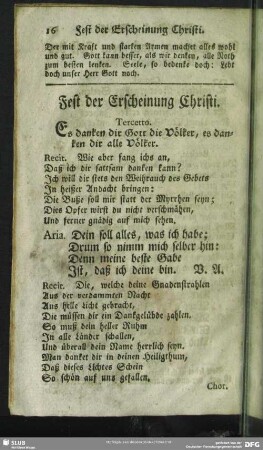 16 Fest der Erscheinung Christi.
Der mit Kraft und starken Armen machet alles wohl
und gut. Gott kann besser, als wir denken, alle Noth
zum besten lenken. Seele, so bedenke doch: Lebt
doch unser Herr Gott noch.
Fest der Erscheinung Christi.
Tercetto.
Es danken dir Gott die Völker, es dan-
ken dir alle Völker.
Recit. Wie aber fang ichs an,
Daß ich dir sattsam danken kann?
Ich will dir stets den Weihrauch des Gebets
In heißer Andacht bringen:
Die Buße soll mir statt der Myrrhen seyn;
Dies Opfer wirst du nicht verschmähen,
Und ferner gnädig auf mich sehen.
Aria. Dein soll alles, was ich habe;
Drum so nimm mich selber hin:
Denn meine beste Gabe
Ist, daß ich deine bin. V. A.
Recit. Die, welche deine Gnadenstrahlen
Aus der verdammten Nacht
Ans helle Licht gebracht,
Die müssen dir ein Dankgelübde zahlen.
So muß dein heller Ruhm
In alle Länder schallen,
Und überall dein Name herrlich seyn.
Man danket dir in deinen Heiligthum,
Daß dieses Lichtes Schein
So schön auf uns gefallen.
Chor.
SLUB
DFG